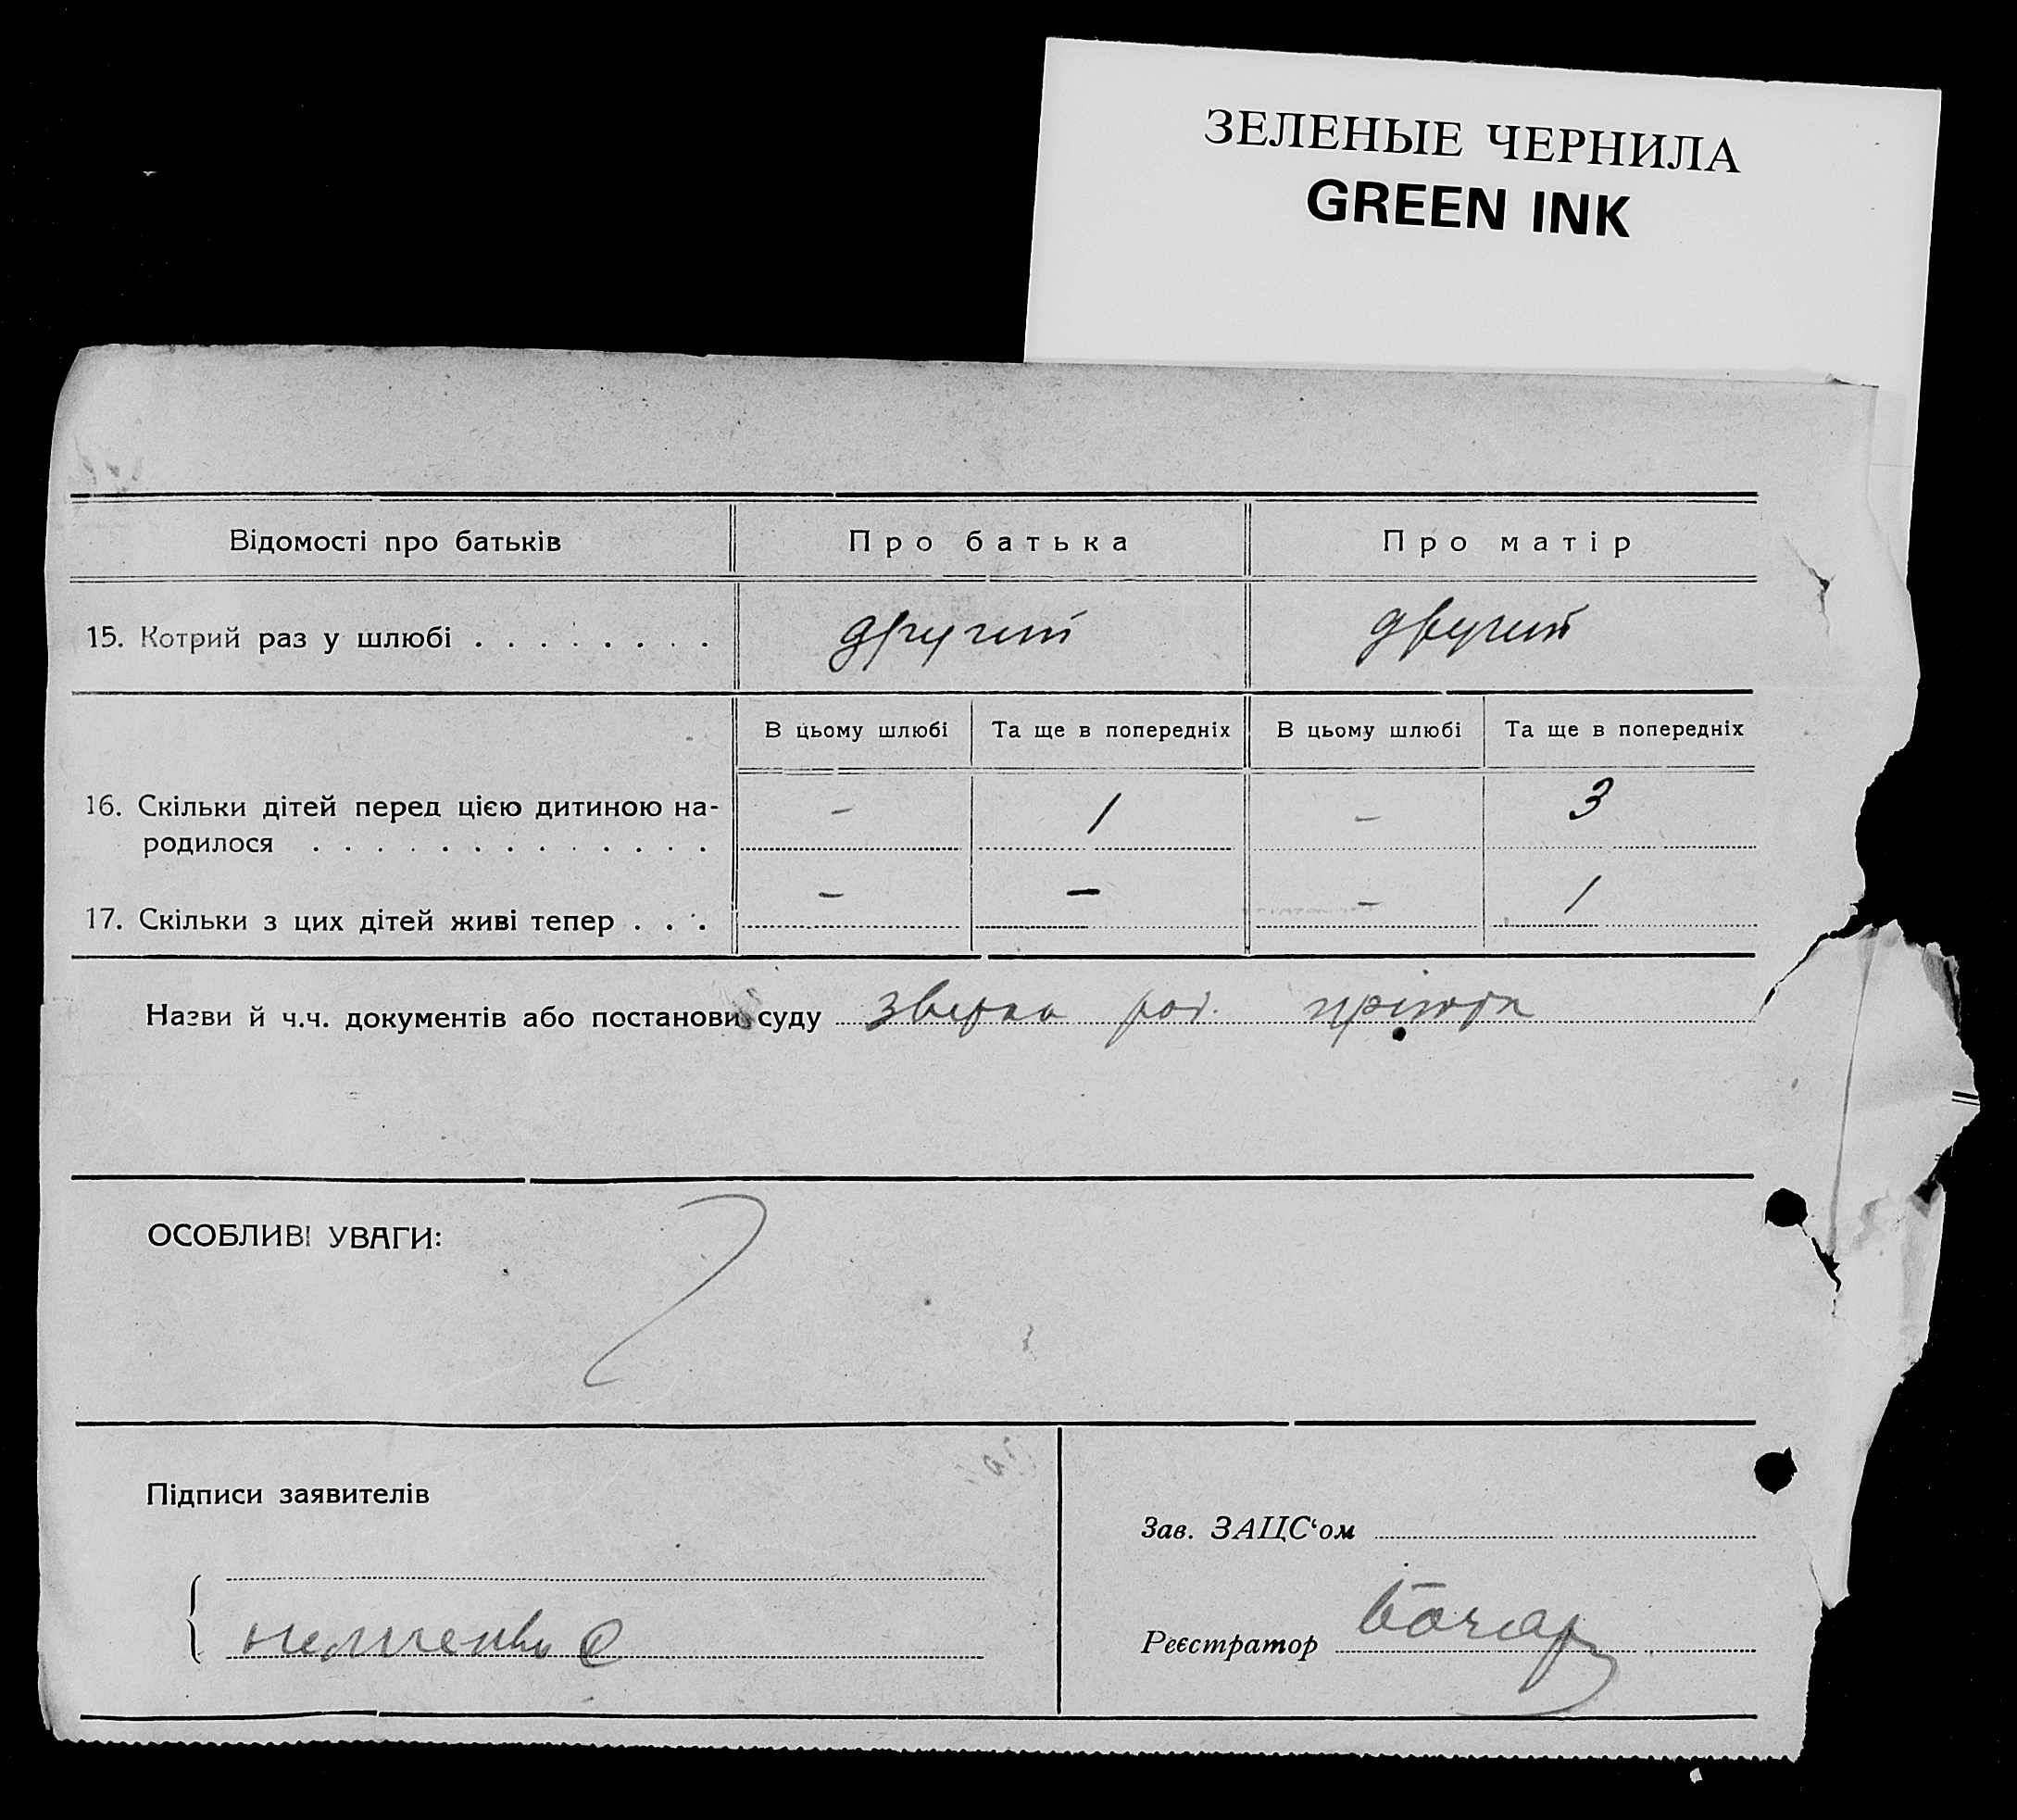 ЗЕЛЕНЫЕ ЧЕРНИЛА
GREEN INK
Відомості про батьків Про батька Про матір
15. Котрий раз у шлюбі . . . . . . . . другий другий
В цьому шлюбі Та ще в попередніх В цьому шлюбі Та ще в попередніх
16. Скільки дітей перед цією дитиною на-
родилося . . . . . . . . . . . . . - 1 - 3
17. Скільки з цих дітей живі тепер . . . - - - 1
Назви й ч.ч. документів або постанови суду
ОСОБЛИВІ УВАГИ:
Підписи заявителів
Зав. ЗАЦС‘ом
Реєстратор Бочар